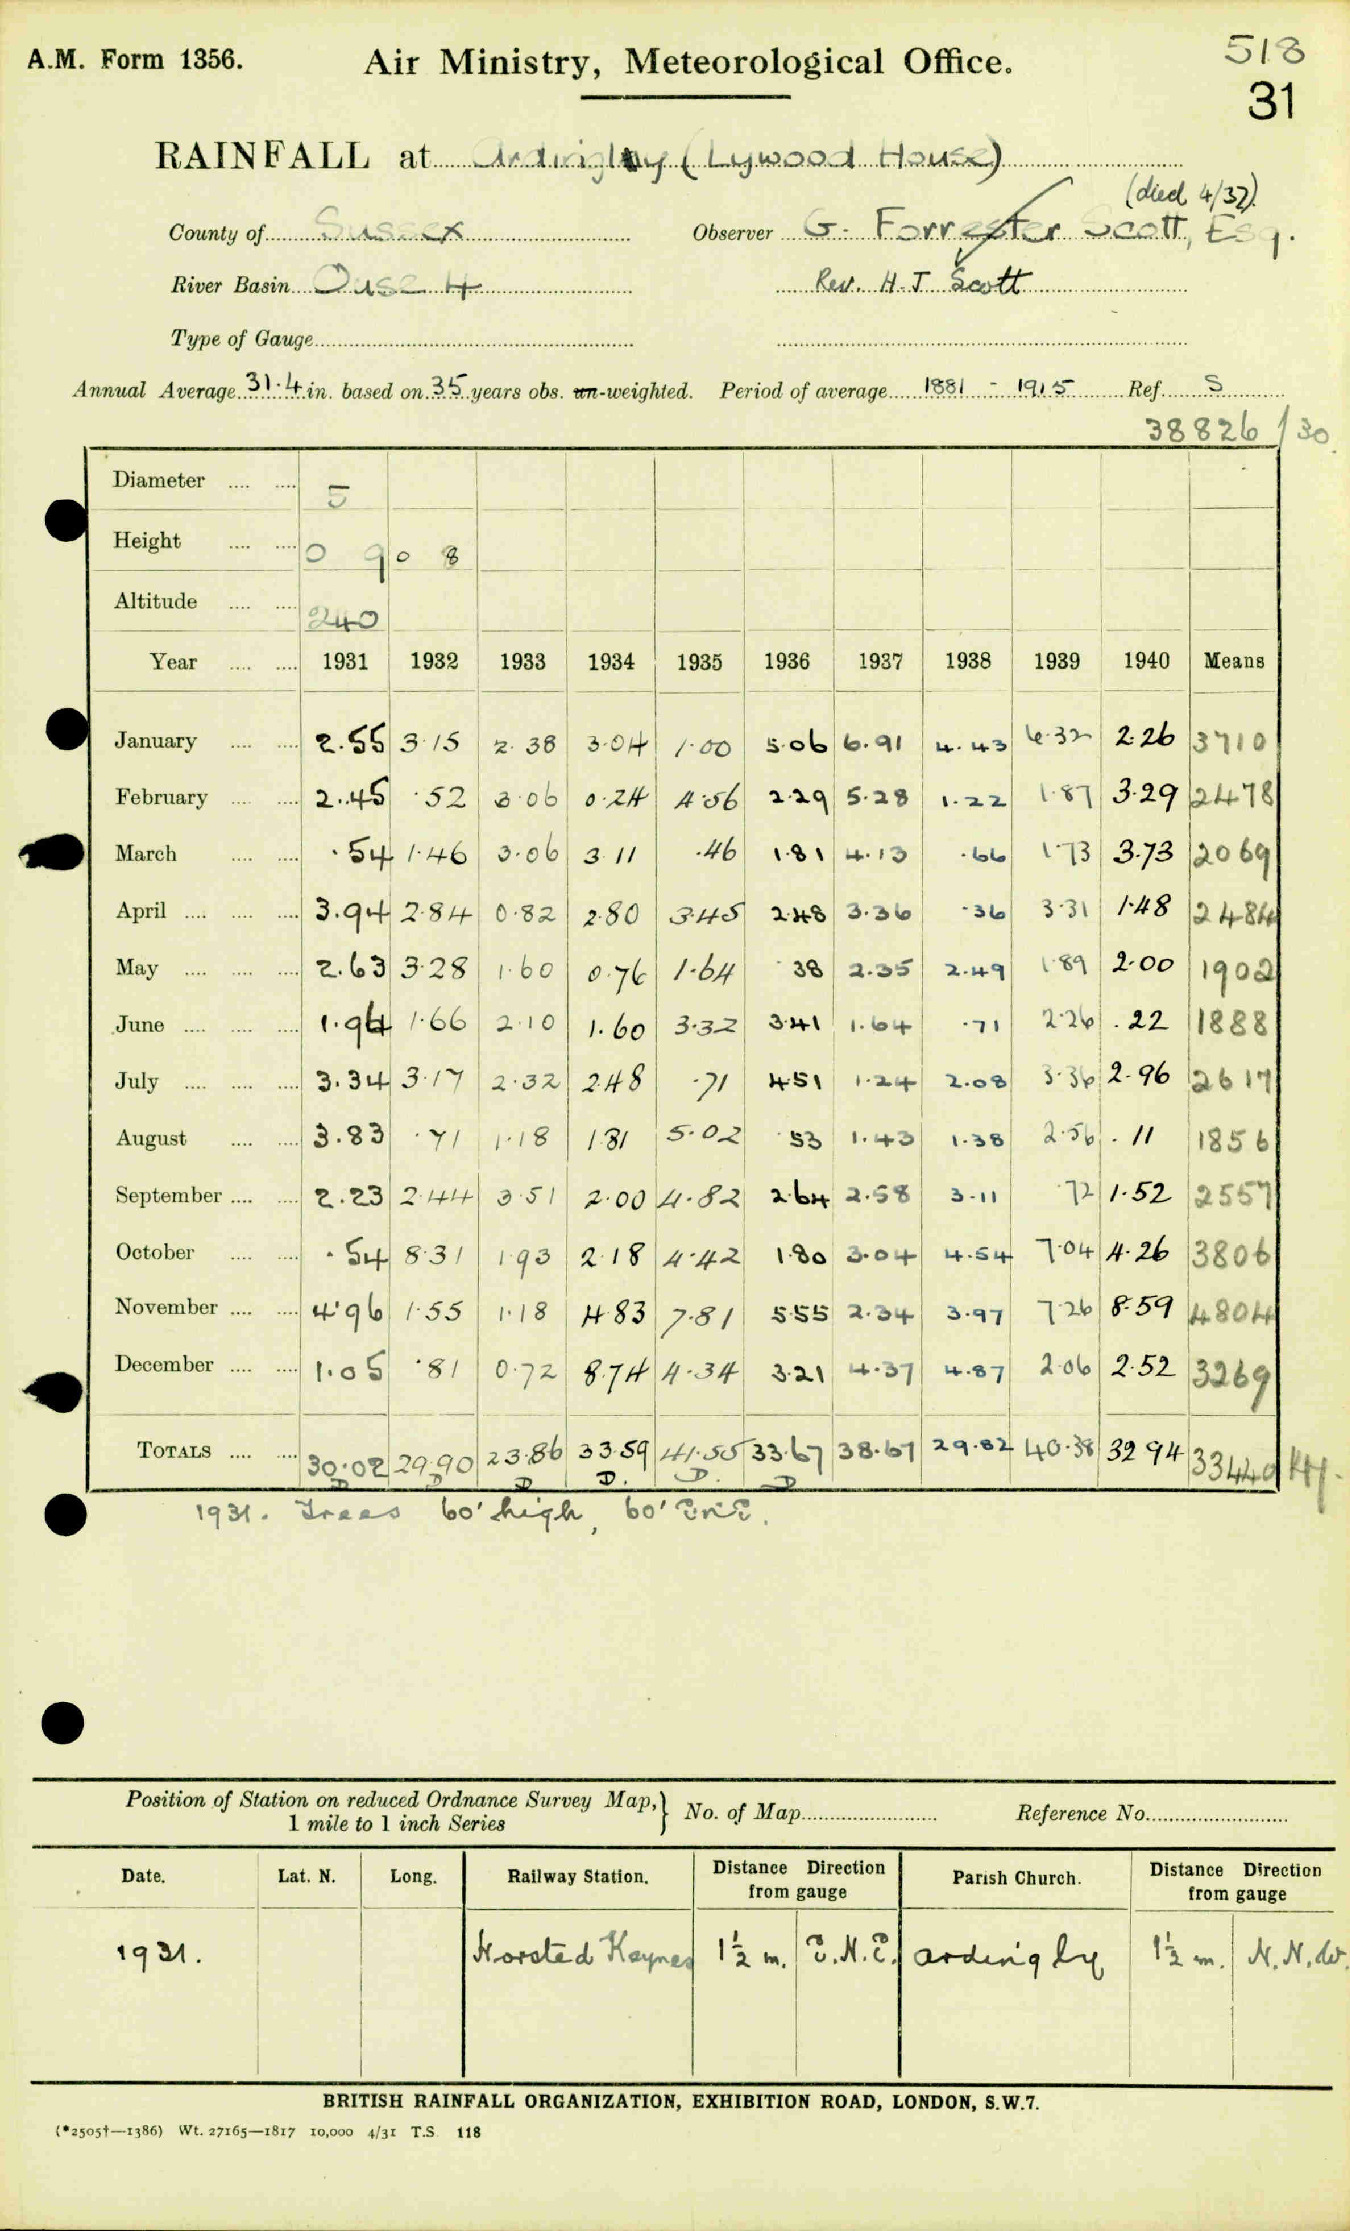 A.M. Form 1356.
Air Ministry, Meteorological Office.
518
31
RAINFALL at Ardingly (Lywood House)
(died 4/32).
County of Sussex Observer G. Forrester Scott, Esq.
River Basin Ouse 4 Rev. H. J. Scott
Type of Gauge
Annual Average 31.4 in. based on 35 years obs. un-weighted. Period of average 1881 - 1915 Ref. S
38826/30
Diameter 5
Height 0 9 0 8
Altitude 240
Year 1931 1932 1933 1934 1935 1936 1937 1938 1939 1940 Means
January 2.55 3.15 2.38 3.04 1.00 5.06 6.91 4.43 6.32 2.26 3710
February 2.45 .52 3.06 0.24 4.56 2.29 5.28 1.22 1.87 3.29 2478
March .54 1.46 3.06 3.11 .46 1.81 4.13 .66 1.73 3.73 2069
April 3.94 2.84 0.82 2.80 3.45 2.48 3.36 .36 3.31 1.48 2484
May 2.63 3.28 1.60 0.76 1.64 .38 2.35 2.49 1.89 2.00 1902
June 1.96 1.66 2.10 1.60 3.32 3.41 1.64 .71 2.26 .22 1888
July 3.34 3.17 2.32 2.48 .71 4.51 1.24 2.08 3.36 2.96 2617
August 3.83 .71 1.18 1.81 5.02 .53 1.43 1.38 2.56 .11 1856
September 2.23 2.44 3.51 2.00 4.82 2.64 2.58 3.11 .72 1.52 2557
October .54 8.31 1.93 2.18 4.42 1.80 3.04 4.54 7.04 4.26 3806
November 4.96 1.55 1.18 4.83 7.81 5.55 2.34 3.97 7.26 8.59 4804
December 1.05 .81 0.72 8.74 4.34 3.21 4.37 4.87 2.06 2.52 3269
TOTALS 30.02 29.90 23.86 33.59 41.55 33.67 38.67 29.82 40.38 32.94 33440
D D D D. D. D
1931. Trees 60' high, 60' ENE.
Position of Station on reduced Ordnance Survey Map, 1 mile to 1 inch Series } No. of Map Reference No.
Date. Lat. N. Long. Railway Station. Distance Direction from gauge Parish Church. Distance Direction from gauge
1931. Horsted Keynes 1½ m. E.N.E. Ardingly 1½ m. N.N.W.
BRITISH RAINFALL ORGANIZATION, EXHIBITION ROAD, LONDON, S.W.7.
(*2505†—1386) Wt. 27165—1817 10,000 4/31 T.S. 118